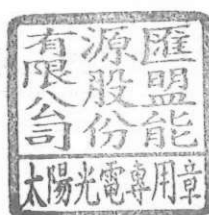 匯盟能
源股份
有限公司
太陽光電專用章